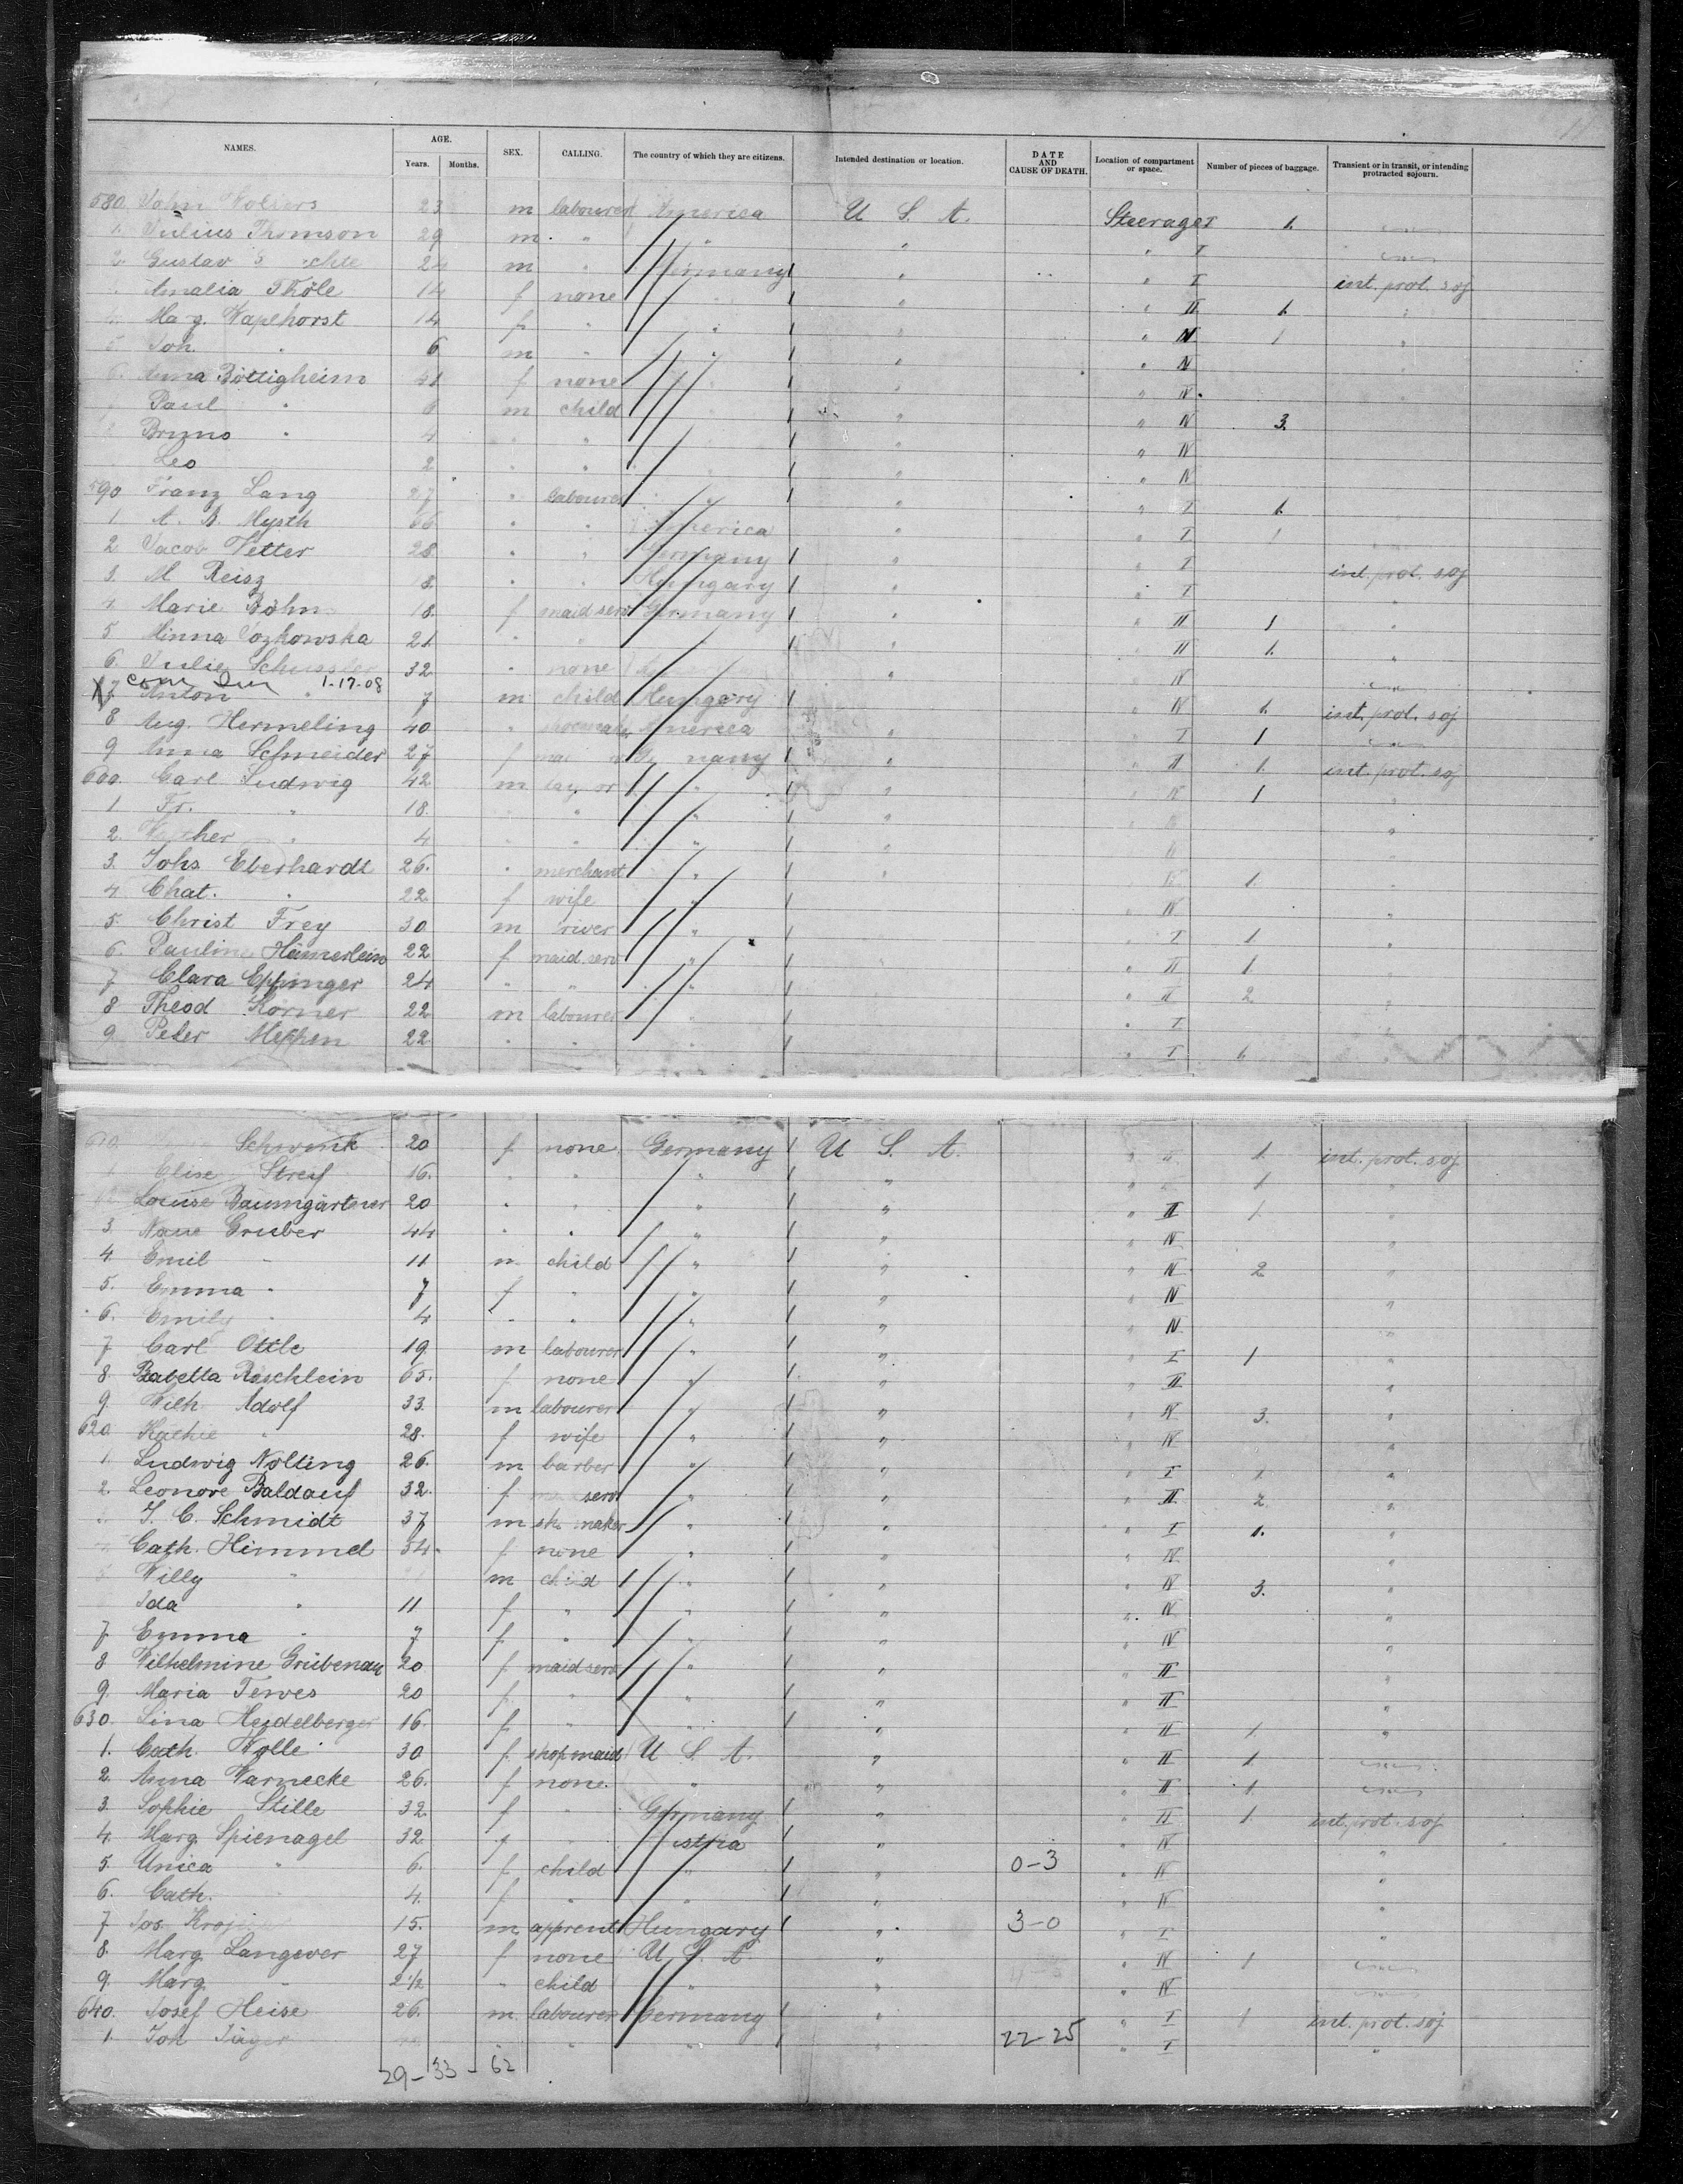 NAMES. AGE. Years. Months. SEX. CALLING. The country of which they are citizens. Intended destination or location. DATE AND CAUSE OF DEATH. Location of compartment or space. Number of pieces of baggage. Transient or in transit, or intending protracted sojourn.
580 John Wolsers 23 m labourer America U. S. A. Steerage I 1.
1. Julius Thomson 29 m " " " " I
2. Gustav 24 m " Germany " " I int. prot. soj
Amalia Thöle 14 f none " " " II 1. "
Marg. Wapelhorst 14 f " " " " IV 1 "
5. Joh. " 6 m " " " " IV "
6. Anna Böttigheim 41 f none " " " IV "
Paul " 6 m child " " " IV 3.
Bruno " 4 " " " " IV
Leo 2 " " " " IV
590 Franz Lang 27 " labourer " " " I 1.
1 A. B. Mysth 66 " " America " " I 1
2 Jacob Vetter 28 " " Germany " " I int. prot. soj
3. M Reisz 18. " " Hungary " " I "
4. Marie Böhm 18. f maid serv Germany " " II 1 "
5 Minna 21. " " " " II 1. "
6. Julie Schussler 32 " none " " IV
Corr 1.17.08
7. Anton " 7 m child Hungary " IV 1. int. prot. soj
8 Aug. Hermeling 40 " shoemaker America " " I 1
9 Anna Schneider 27 f Germany " " II 1. int. prot. soj
600. Carl Ludwig 42 m " " " IV 1 "
1 Fr. " 18. " " " " "
2. " 4 " " "
3. Johs. Eberhardt 26. " merchant " " IV 1. "
4. Chat. " 22 f wife " " IV "
5. Christ Frey 30 m " " I 1 "
6. Pauline Hämerlein 22 f maid serv " " " II 1. "
7 Clara Eppinger 24 " " " " II 2 "
8 Theod Körner 22 m labourer " " I "
9. Peter Meppen 22 " " " " I 1. "
610. Schwenk 20 f none Germany U. S. A. " II 1. int. prot. soj
1 Elise Streif 16. " " " " " II 1 "
Louise Baumgärtner 20 " " " " " II 1. "
3. Nane Gruber 44 " " " " " IV "
4. Emil " 11 m child " " " IV 2 "
5. Emma " 7 f " " " " IV "
6. Emily " 4 " " " " " IV "
7 Carl Ottle 19 m labourer " " " I 1 "
8. Babetta Röschlein 65. f none " " " II "
9. Wilh. Adolf 33. m labourer " " " IV 3. "
620. Kathie " 28. f wife " " " IV "
1. Ludwig Nolting 26. m barber " " " I 1. "
2. Leonore Baldauf 32. f serv " " " II 2 "
J. C. Schmidt 37 m shoemaker " " " I 1. "
Cath. Himmel 34. f none " " " IV "
Willy " m child " " " IV 3. "
Ida " 11 f " " " " IV "
7 Emma " 7 f " " " " IV "
8 Wilhelmine Grübenau 20 f maid serv " " " II "
9. Maria Tewes 20 f " " " " II "
630. Lina Heidelberger 16. f " " " " II 1. "
1. Cath. Wolle 30 f shopmaid U. S. A. " " II 1.
2. Anna Warnecke 26. f none. " " " II 1.
3. Sophie Stille 32. f " Germany " " II 1. int. prot. soj
4. Marg. Spienagel 32. f " Austria " " IV "
5. Unica " 6. f child " " 0-3 " IV "
6. Cath. " 4. f " " " " IV "
7 Jos. 15. m apprent Hungary " 3-0 " I "
8. Marg. Langever 27 f none U. S. A. " " IV 1
9. Marg. " 2½ " child " " " IV
640. Josef Heise 26. m labourer Germany " " I 1 int. prot. soj
1. Joh Jäger " " " 22-25 " I "
29-33-62